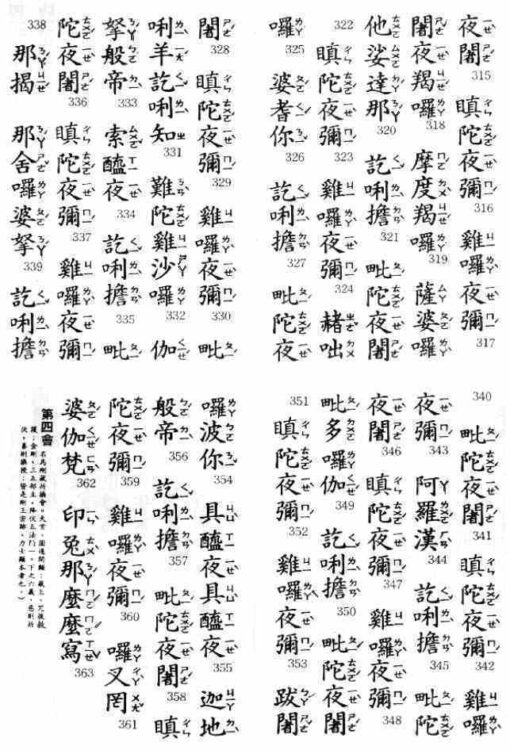 夜闍 315 瞋陀夜彌 316 雞囉夜彌 317
闍夜羯囉 318 摩度羯囉 319 薩婆囉
他娑達那 320 訖唎擔 321 毗陀夜闍
322 瞋陀夜彌 323 雞囉夜彌 324 赭咄
囉 325 婆耆你 326 訖唎擔 327 毗陀夜
闍 328 瞋陀夜彌 329 雞囉夜彌 330 毗
唎羊訖唎知 331 難陀雞沙囉 332 伽
拏般帝 333 索醯夜 334 訖唎擔 335 毗
陀夜闍 336 瞋陀夜彌 337 雞囉夜彌
338 那揭那舍囉婆拏 339 訖唎擔
340 毗陀夜闍 341 瞋陀夜彌 342 雞囉
夜彌 343 阿羅漢 344 訖唎擔 345 毗陀
夜闍 346 瞋陀夜彌 347 雞囉夜彌 348
毗多囉伽 349 訖唎擔 350 毗陀夜闍
351 瞋陀夜彌 352 雞囉夜彌 353 跋闍
囉波你 354 具醯夜具醯夜 355 迦地
般帝 356 訖唎擔 357 毗陀夜闍 358 瞋
陀夜彌 359 雞囉夜彌 360 囉叉罔 361
婆伽梵 362 印兔那麼麼寫 363
第四會